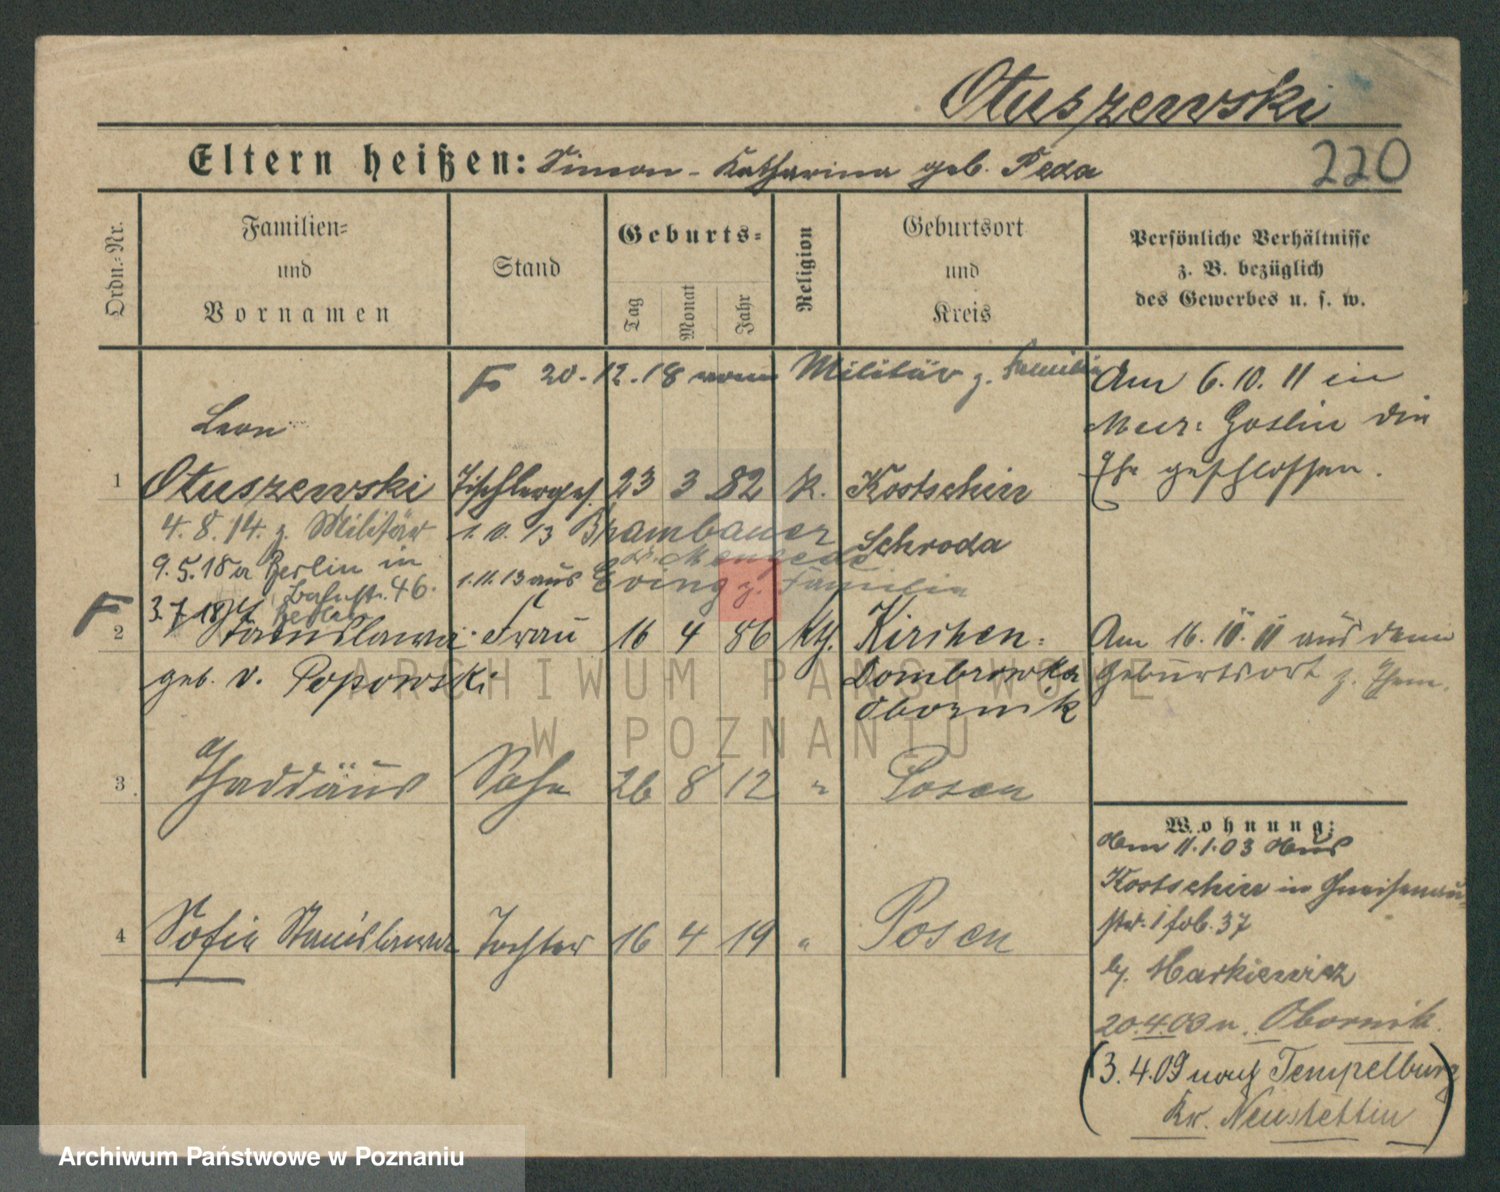 Otuszewski
Eltern heißen: Simon - Katharina geb. Peda
220
Ordn.-Nr.
Familien-
und
Vornamen
Stand
Geburts-
Tag
Monat
Jahr
Religion
Geburtsort
und
Kreis
Persönliche Verhältnisse
z. B. bezüglich
des Gewerbes u. s. w.
F 20.12.18 vom Militär z. Familie
Am 6.10.11 in
Mur. Goslin die
Ehe geschlossen.
Leon
1 Otuszewski Tischlerges. 23 3 82 k. Kostschin
Schroda
4.8.14. z. Militär
1. 13 Brambauer
Mengede
9.5.18 Berlin in
46.
1.11.13 aus Eving z. Familie
F 3.7.18 Berlin
2 Stanislawa Frau 16 4 86 kth. Kirchen-
Dombrowka
Obornik
geb. v. Popowski
Am 16.10.11 aus dem
Geburtsort z. Ehem.
3 Thaddäus Sohn 26 8 12 " Posen
4 Sofie Stanislawa Tochter 16 4 19 " Posen
Wohnung:
Am 11.1.03 aus
Kostschin in Gneisenau-
str. 37
b. Markiewicz
20.4.03 n. Obornik.
(3.4.09 nach Tempelburg
Kr. Neustettin)
ARCHIWUM PAŃSTWOWE
W POZNANIU
Archiwum Państwowe w Poznaniu